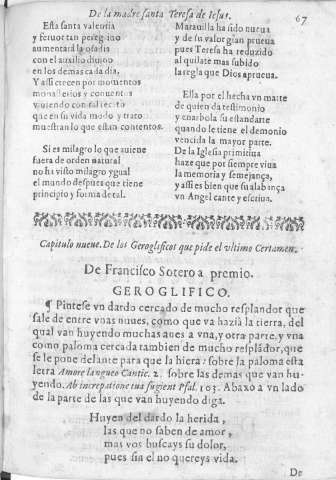 De la madre santa Teresa de Iesus.
67
Esta santa valentia
y feruor tan peregrino
aumentará la osadia
con el auxilio diuino
en los demas cada dia,
Y assi crecen por momentos
monasterios y conuentos
viuiendo con
que en su vida modo y trato
muestran lo que estan contentos.
Si es milagro lo que auiene
fuera de orden natural
no ha visto milagro ygual
el mundo despues que tiene
principio y forma de tal.
Marauilla ha sido nueua
y de su valor gran prueua
pues Teresa ha reduzido
al quilate mas subido
la regla que Dios aprueua.
Ella por el hecho vn matte
de quien da testimonio
y enarbola su estandarte
quando le tiene el demonio
vencida la mayor parte.
De la Iglesia primitiua
haze que por siempre viua
la memoria y semejança,
y assi es bien que su alabança
vn Angel cante y escriua.
Capitulo nueue. De los Geroglificos que pide el vltimo Certamen.
De Francisco Sotero a premio.
GEROGLIFICO.
¶ Pintese vn dardo cercado de mucho resplandor que
sale de entre vnas nuues, como que va hazia la tierra, del
qual van huyendo muchas aues a vna, y otra parte, y vna
como paloma cercada tambien de mucho resplãdor, que
se le pone delante para que la hiera: sobre la paloma esta
letra Amore langueo Cantic. 2. sobre las demas que van hu-
yendo. Ab increpatione tua fugient Psal. 103. Abaxo a vn lado
de la parte de las que van huyendo diga.
Huyen del dardo la herida,
las que no saben de amor,
mas vos buscays su dolor,
pues sin el no quereys vida.
De